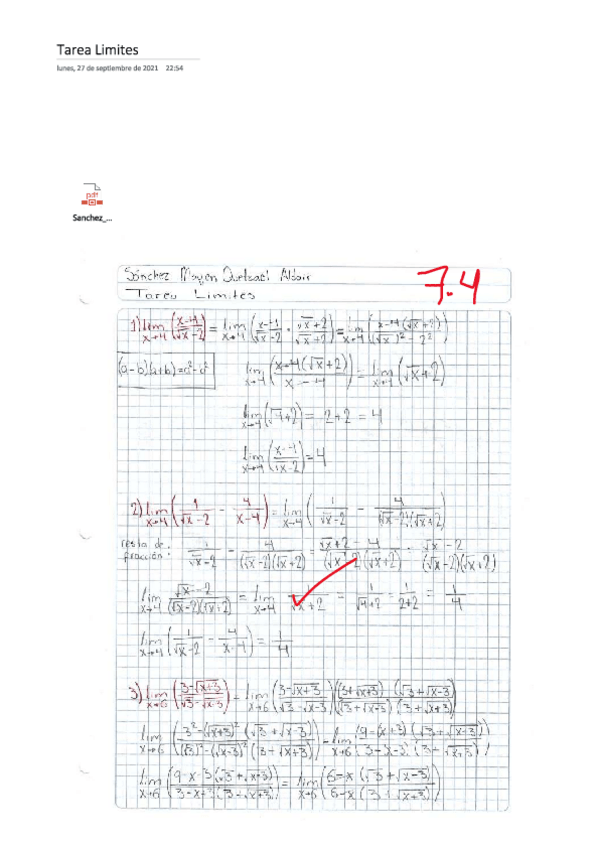 Tarea Limites
lunes, 27 de septiembre de 2021 22:54
pdf
Sanchez_...
Sánchez Mayen Quetzacl Aldair 7.4
Tarea Limites
1) lim x→4 (x-4/√x-2) = lim x→4 (x-4/√x-2 · √x+2/√x+2) = lim x→4 (x-4(√x+2)/(√x)²-2²)
(a-b)(a+b)=a²-b² lim x→4 (x-4(√x+2)/x-4) = lim x→4 (√x+2)
lim x→4 (√4+2) = 2+2 = 4
lim x→4 (x-4/√x-2) = 4
2) lim x→4 (1/√x-2 - 4/x-4) = lim x→4 (1/√x-2 - 4/(√x-2)(√x+2)
resta de fracción: 1/√x-2 - 4/(√x-2)(√x+2) = √x+2-4/(√x-2)(√x+2) · √x-2/(√x-2)(√x+2)
lim x→4 √x-2/(√x-2)(√x+2) = lim x→4 1/√x+2 = 1/√4+2 = 1/2+2 = 1/4
lim x→4 (1/√x-2 - 4/x-4) = 1/4
3) lim x→6 (3-√x+3/√3-√x-3) = lim x→6 (3-√x+3/√3-√x-3)(3+√x+3)(√3+√x-3)/(√3+√x-3)(3+√x+3)
lim x→6 (3²-(√x+3)²(√3+√x-3)/(√3)²-(√x-3)²(3+√x+3)) = lim x→6 (9-(x+3)(√3+√x-3)/3-x-3(3+√x+3))
lim x→6 (9-x-3(√3+√x-3)/3-x+3(3+√x+3)) = lim x→6 (6-x(√3+√x-3)/6-x(3+√x+3))